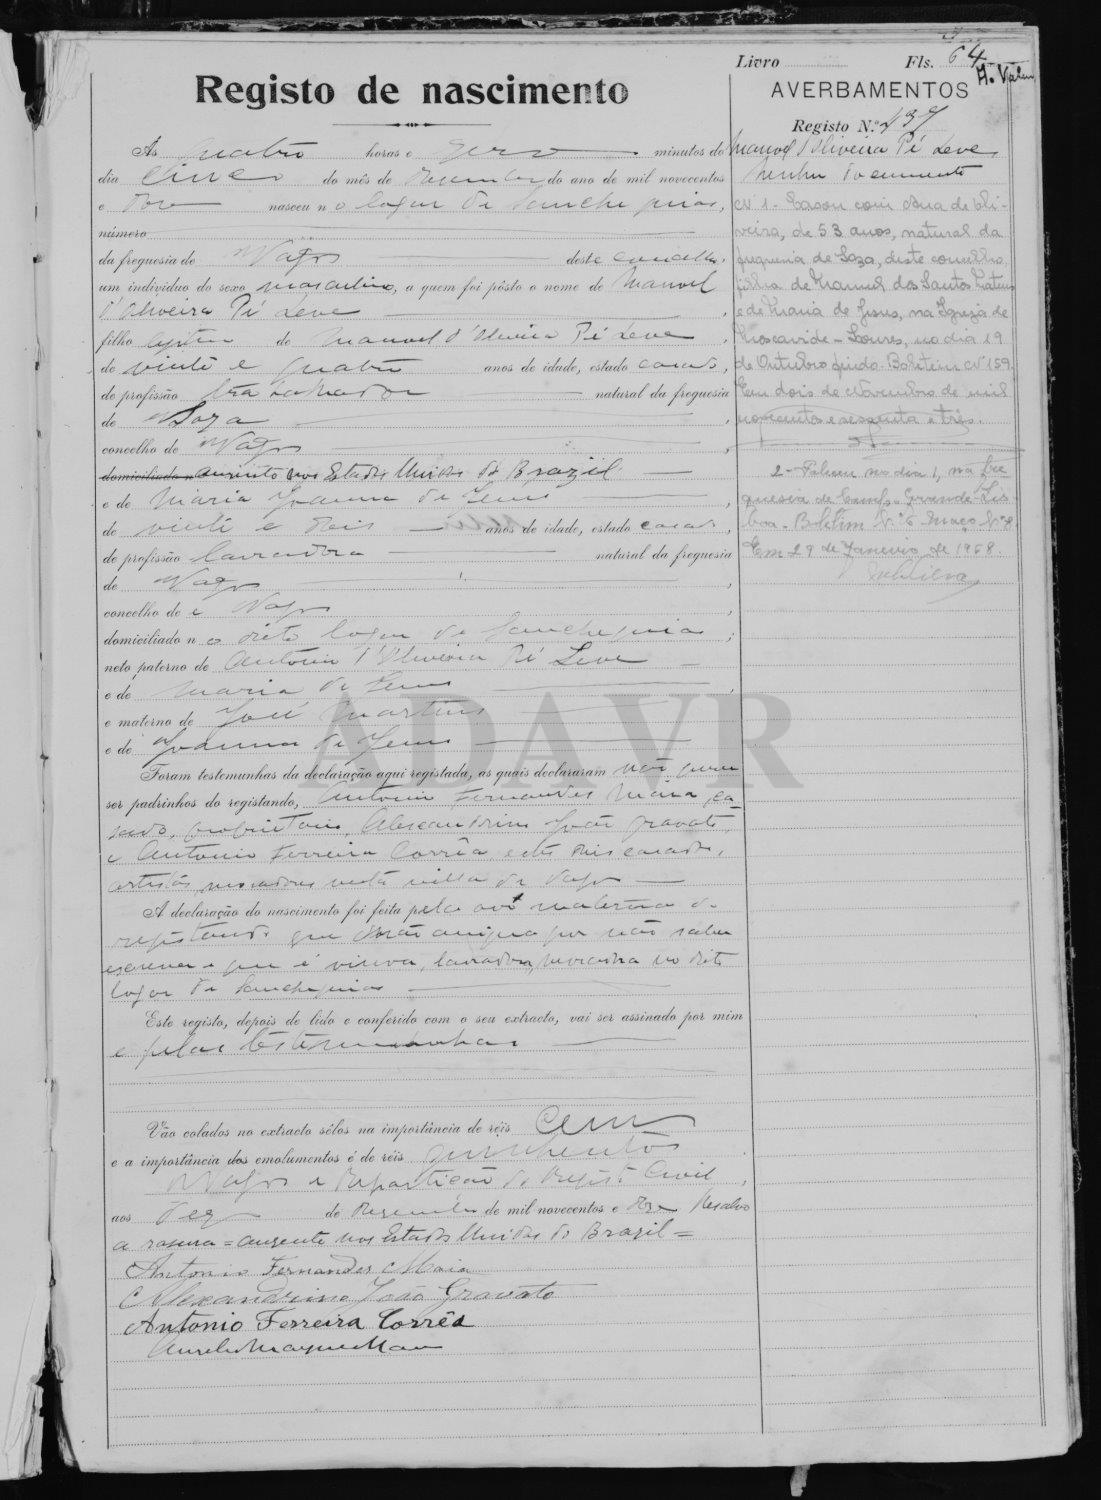 Livro Fls. 64
Registo de nascimento
AVERBAMENTOS
Registo N.º 437
Manoel d'Oliveira Pé Leve
Nenhum documento
Ás quatro horas e zero minutos do
dia cinco do mês de Dezembro do ano de mil novecentos
e doze nasceu n o logar de Sanchequias,
número
da freguesia de Vagos deste concelho,
um indivíduo do sexo masculino, a quem foi pôsto o nome de Manoel
d'Oliveira Pé Leve
filho legitimo de Manoel d'Oliveira Pé Leve,
de vinte e quatro anos de idade, estado casado,
de profissão trabalhador natural da freguesia
de Soza,
concelho de Vagos,
domiciliado n ausente nos Estados Unidos do Brazil
e de Maria Joanna de Jesus,
de vinte e dois anos de idade, estado casada,
de profissão lavradora natural da freguesia
de Vagos,
concelho de Vagos,
domiciliado n o dito logar de Sanchequias;
neto paterno de Antonio d'Oliveira Pé Leve
e de Maria de Jesus,
e materno de José Martins
e de Joanna de Jesus
Foram testemunhas da declaração aqui registada, as quais declararam não querer
ser padrinhos do registando, Antonio Fernandes Maia, ca-
sado, proprietario, Alexandrino João Gravato,
e Antonio Ferreira Corrêa estes dois casados,
artistas, moradores nesta villa de Vagos
A declaração do nascimento foi feita pela avó materna do
registando que não assigna por não saber
escrever e que é viuva, lavradora, moradora no dito
logar de Sanchequias
Este registo, depois de lido e conferido com o seu extracto, vai ser assinado por mim
e pelas testemunhas
Vão colados no extracto sêlos na importância de réis Cem
e a importância dos emolumentos é de réis quinhentos
Vagos e Repartição do Registo Civil,
aos dez de Dezembro de mil novecentos e doze Resalvo
a rasura = ausente nos Estados Unidos do Brazil =
Antonio Fernandes Maia
Alexandrino João Gravato
Antonio Ferreira Corrêa
Nº 1 - Casou com Ana de Oli-
veira, de 53 anos, natural da
freguesia de Soza, deste concelho,
filha de Manuel dos Santos
e de Maria de Jesus, na Igreja de
Moscavide - Loures, no dia 19
de Outubro findo. Boletim Nº 159.
Em dois de Novembro de mil
novecentos e sessenta e três.
2 - Faleceu no dia 1, na fre
guesia de Campo Grande Lis-
boa - Boletim Nº 6 - Maço Nº
Em 29 de Janeiro de 1968.
ADAVR